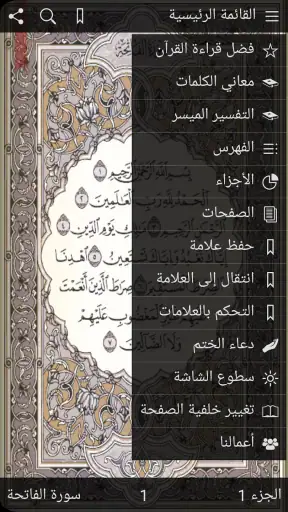 القائمة الرئيسية
فضل قراءة القرآن
معاني الكلمات
التفسير الميسر
الفهرس
الأجزاء
الصفحات
حفظ علامة
انتقال إلى العلامة
التحكم بالعلامات
دعاء الختم
سطوع الشاشة
تغيير خلفية الصفحة
أعمالنا
بِسْمِ ٱللَّهِ ٱلرَّحْمَٰنِ ٱلرَّحِيمِ ١
ٱلْحَمْدُ لِلَّهِ رَبِّ ٱلْعَٰلَمِينَ ٢
ٱلرَّحْمَٰنِ ٱلرَّحِيمِ ٣ مَٰلِكِ يَوْمِ ٱلدِّينِ ٤
إِيَّاكَ نَعْبُدُ وَإِيَّاكَ نَسْتَعِينُ ٥ ٱهْدِنَا
صِرَٰطَ ٱلَّذِينَ أَنْعَمْتَ
عَلَيْهِمْ
وَلَا ٱلضَّآلِّينَ ٧
الجزء 1
1
سورة الفاتحة